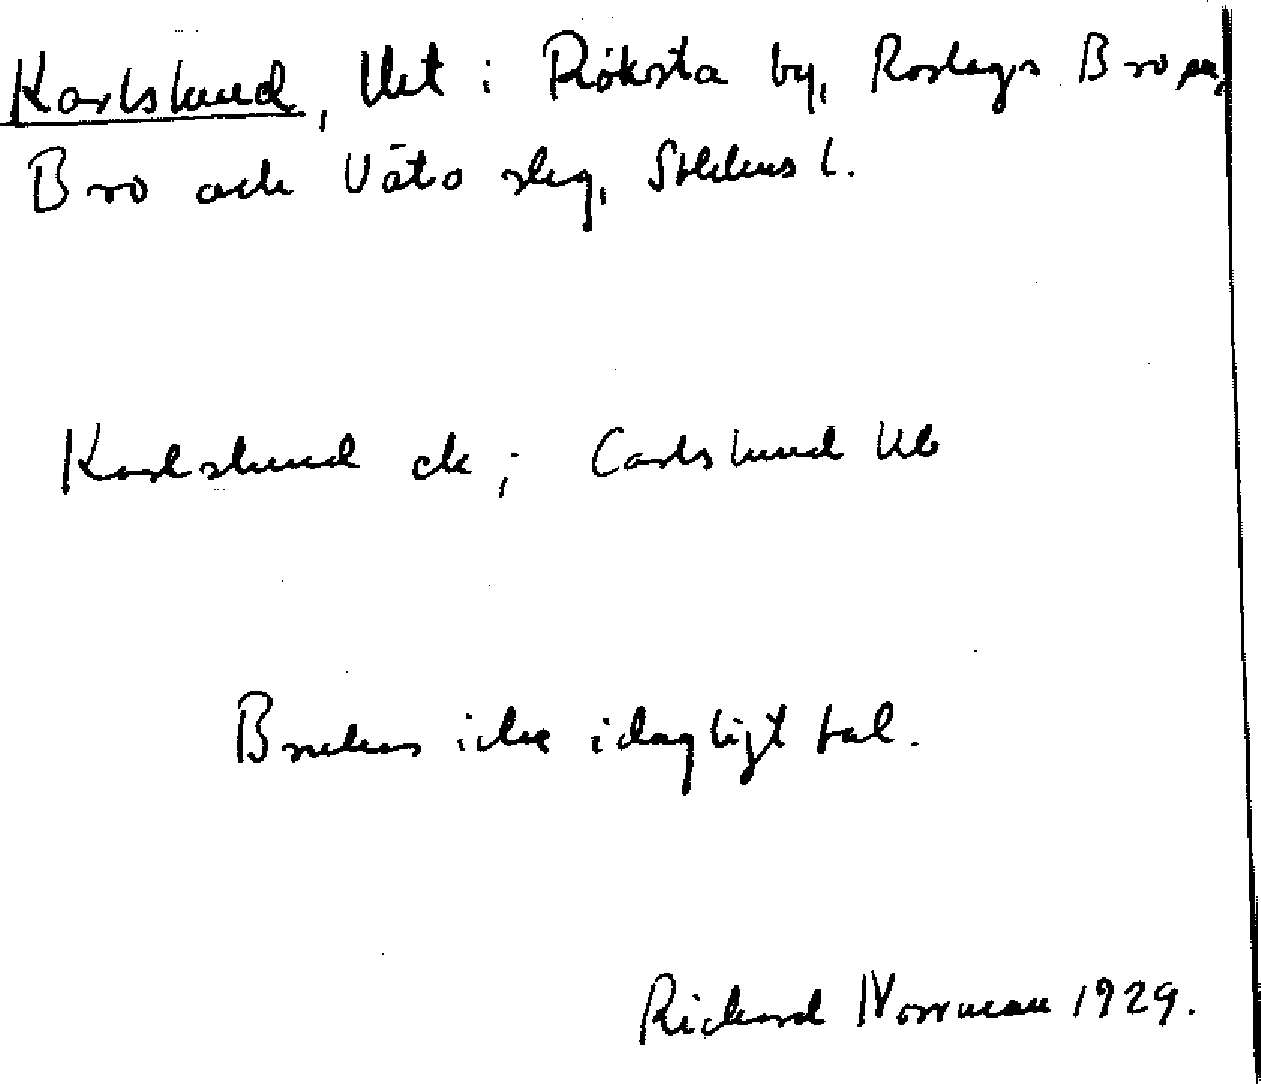 Karlslund, lht i Röksta by, Roslags Bro sn,
Bro och Vätö skg, Sthlms l.
Karlslund ek; Carlslund
Brukas icke i dagligt tal.
Rickard Norrman 1929.